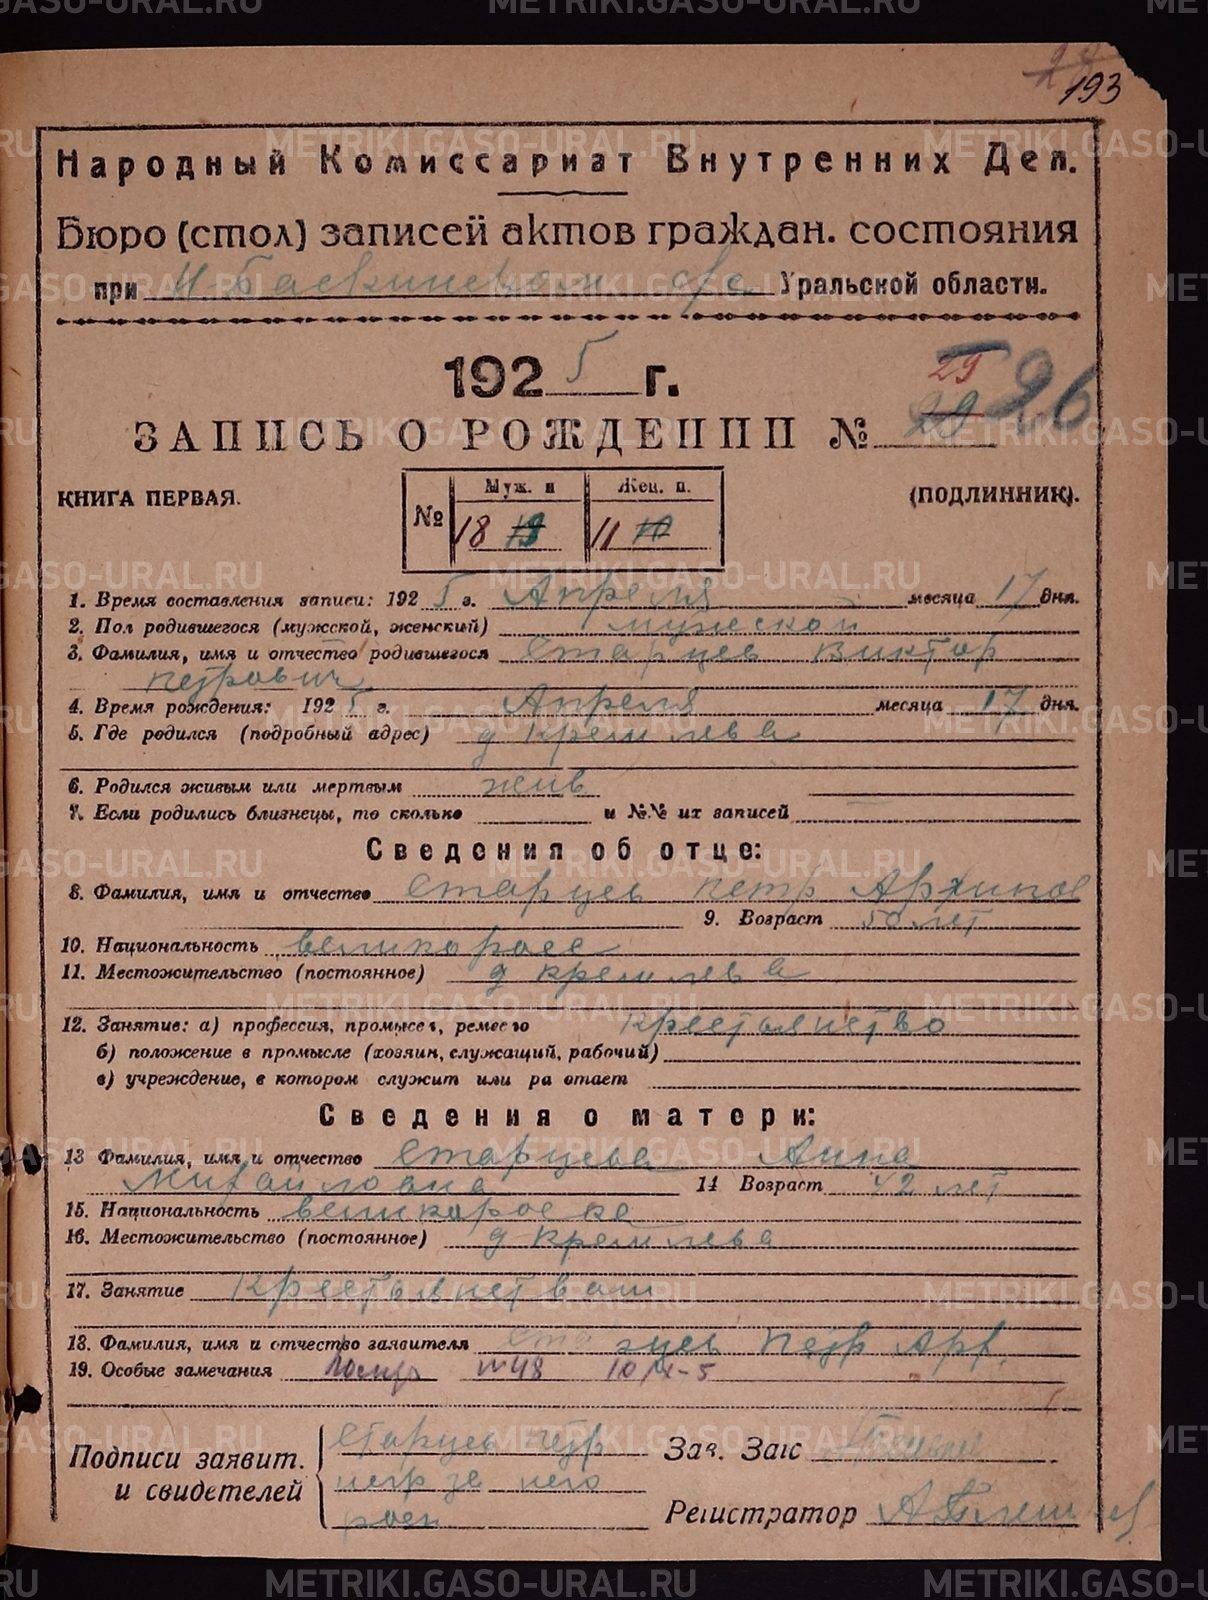 193
Народный Комиссариат Внутренних Дел.
Бюро (стол) записей актов граждан. состояния
при Н Баскинском с/с Уральской области.
1925 г.
29
ЗАПИСЬ О РОЖДЕНИИ № 29 26
КНИГА ПЕРВАЯ. (ПОДЛИННИК).
Муж. п Жен. п.
№ 18 19 11 10
1. Время составления записи: 1925 г. Апреля месяца 17 дня.
2. Пол родившегося (мужской, женский) мужской
3. Фамилия, имя и отчество родившегося Старцев Виктор
Петрович
4. Время рождения: 1925 г. Апреля месяца 17 дня.
5. Где родился (подробный адрес) д Кремлева
6. Родился живым или мертвым жив
7. Если родились близнецы, то сколько и №№ их записей —
Сведения об отце:
8. Фамилия, имя и отчество Старцев Петр Архипов
9. Возраст 50 лет
10. Национальность великоросс
11. Местожительство (постоянное) д Кремлева
12. Занятие: а) профессия, промысел, ремесло крестьянство
б) положение в промысле (хозяин, служащий, рабочий)
в) учреждение, в котором служит или ра отает
Сведения о матери:
13 Фамилия, имя и отчество Старцева Анна
Михайловна 14 Возраст 42 лет
15. Национальность великороска
16. Местожительство (постоянное) д Кремлева
17. Занятие Крестьянством
18. Фамилия, имя и отчество заявителя Старцев Петр Арх.
19. Особые замечания №48
Подписи заявит. Старцев Петр Зав. Загс
и свидетелей негр за него
рос Регистратор
METRIKI.GASO-URAL.RU